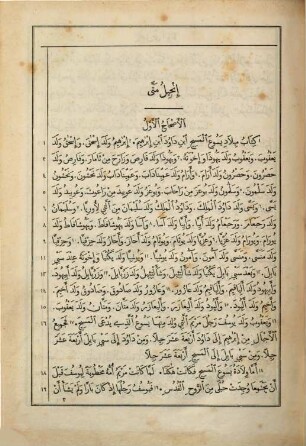 إنجيل متى
الأصحاح الأول
كتاب ميلاد يسوع المسيح ابن داود ابن ابراهيم ابراهيم ولد اسحق واسحق ولد
يعقوب ويعقوب ولد يهوذا واخوته ويهوذا ولد فارص وزارح من ثامار وفارص ولد
حصرون وحصرون ولد ارام وارام ولد عميناداب وعميناداب ولد نحشون ونحشون
ولد سلمون وسلمون ولد بوعز من راحاب وبوعز ولد عوبيد من راعوث وعوبيد ولد
يسى ويسى ولد داود الملك وداود الملك ولد سليمان من التي لاوريا وسليمان
ولد رحبعام ورحبعام ولد ابيا وابيا ولد آسا وآسا ولد يهوشافاط ويهوشافاط ولد
يورام ويورام ولد عزيا وعزيا ولد يوثام ويوثام ولد احاز واحاز ولد حزقيا وحزقيا
ولد منسى ومنسى ولد آمون وآمون ولد يوشيا ويوشيا ولد يكنيا واخوته عند سبي
بابل وبعد سبي بابل يكنيا ولد شألتيئيل وشألتيئيل ولد زربابل وزربابل ولد ابيهود
وابيهود ولد الياقيم والياقيم ولد عازور وعازور ولد صادوق وصادوق ولد اخيم
واخيم ولد اليود واليود ولد اليعازر واليعازر ولد متان ومتان ولد يعقوب
ويعقوب ولد يوسف رجل مريم التي ولد منها يسوع الذي يدعى المسيح فجميع
الاجيال من ابراهيم الى داود اربعة عشر جيلا ومن داود الى سبي بابل اربعة عشر
جيلا ومن سبي بابل الى المسيح اربعة عشر جيلا
١٨ اما ولادة يسوع المسيح فكانت هكذا لما كانت مريم امه مخطوبة ليوسف قبل
١٩ ان يجتمعا وجدت حبلى من الروح القدس فيوسف رجلها اذ كان بارا ولم يشأ ان